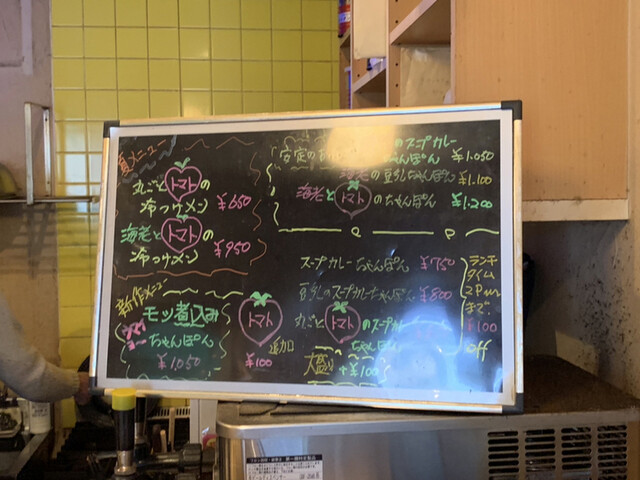 夏メニュー
丸ごと トマト の
冷つけメン ¥650
海老と トマト の
冷つけメン ¥950
新作メニュー
モツ煮込み
ちゃんぽん
¥1,050
トマト
追加
¥100
安定の のスープカレー
ちゃんぽん ¥1.050
海老の豆乳ちゃんぽん ¥1.100
海老と トマト のちゃんぽん ¥1.200
スープカレーちゃんぽん ¥750
豆乳のスープカレーちゃんぽん ¥800
丸ごと トマト のスープカレー
ちゃんぽん
大盛り +¥100
ランチ
タイム
2Pm
まで
¥100
off